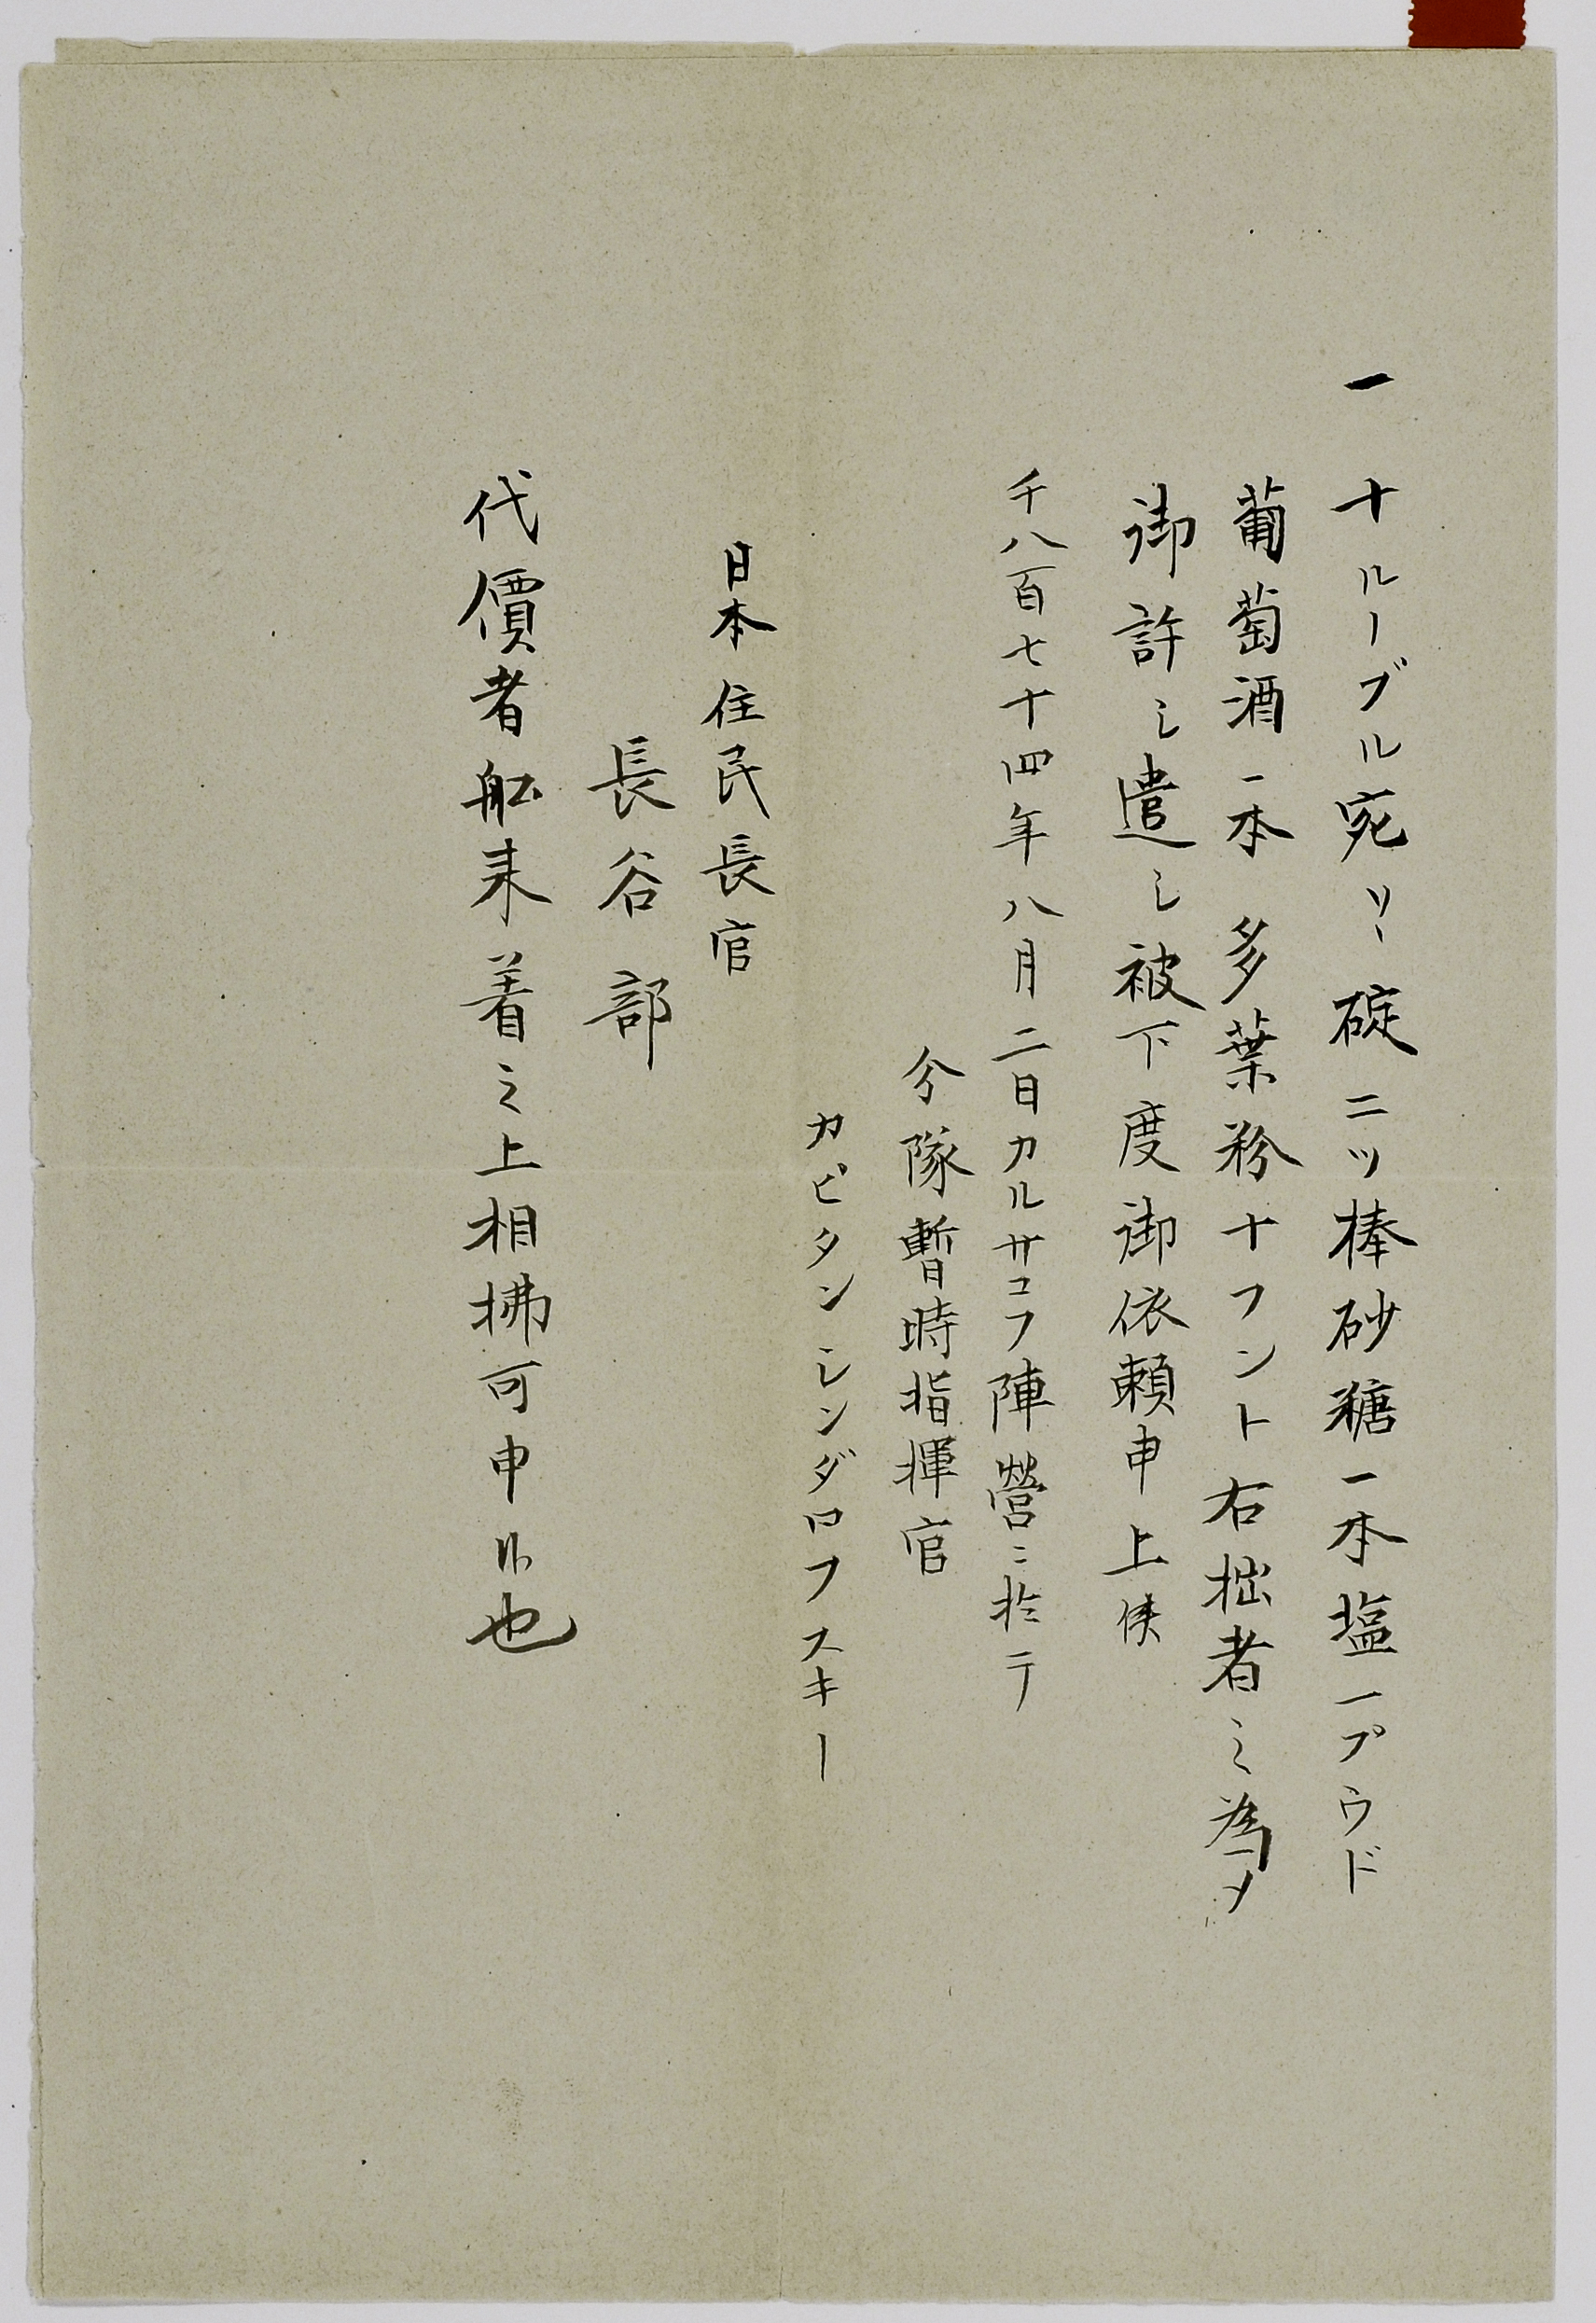 一 十ルーブル宛ノ碇二ツ棒砂糖一本塩一プウド
葡萄酒一本多葉粉十フント右拙者之為メ
御許し遣し被下度御依頼申上候
千八百七十四年八月二日カルサコフ陣營ニ於テ
分隊暫時指揮官
カピタンレンダロフスキー
日本住民長官
長谷部
代價者舩来着之上相拂可申候也